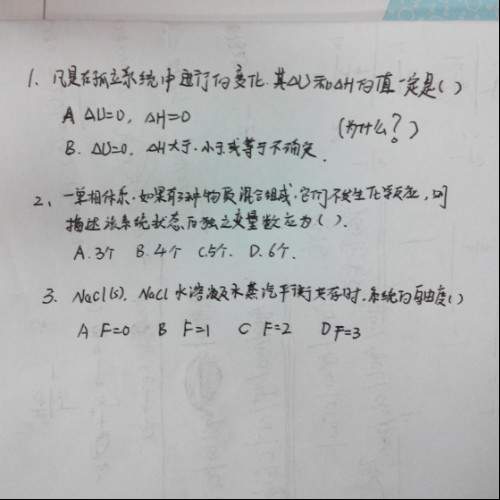 1、凡是在孤立系统中进行的变化.其△U和△H的值一定是( )
A △U=0, △H=0
(为什么?)
B. △U=0. △H大于.小于或等于不确定.
2、一单相体系.如果有3种物质混合组成.它们不发生化学反应,则
描述该系统状态的独立变量数应为( ).
A.3个 B.4个 C.5个. D.6个.
3. NaCl(s), NaCl水溶液及水蒸汽平衡共存时.系统的自由度( )
A F=0 B F=1 C F=2 D F=3